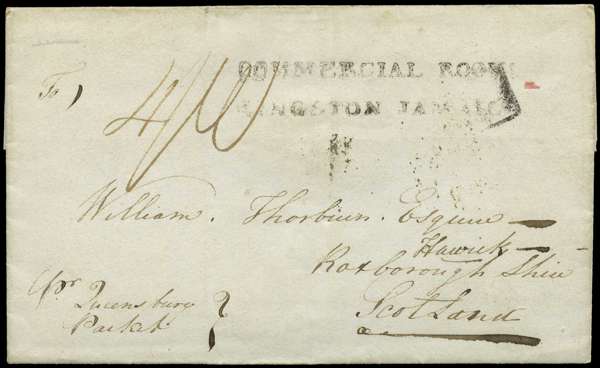 COMMERCIAL ROOMS
KINGSTON JAMAICA
To
4/10
William. Thorburn. Esquire
Hawick
Roxborough Shire
Scotland
Pr Queensbury
Packet